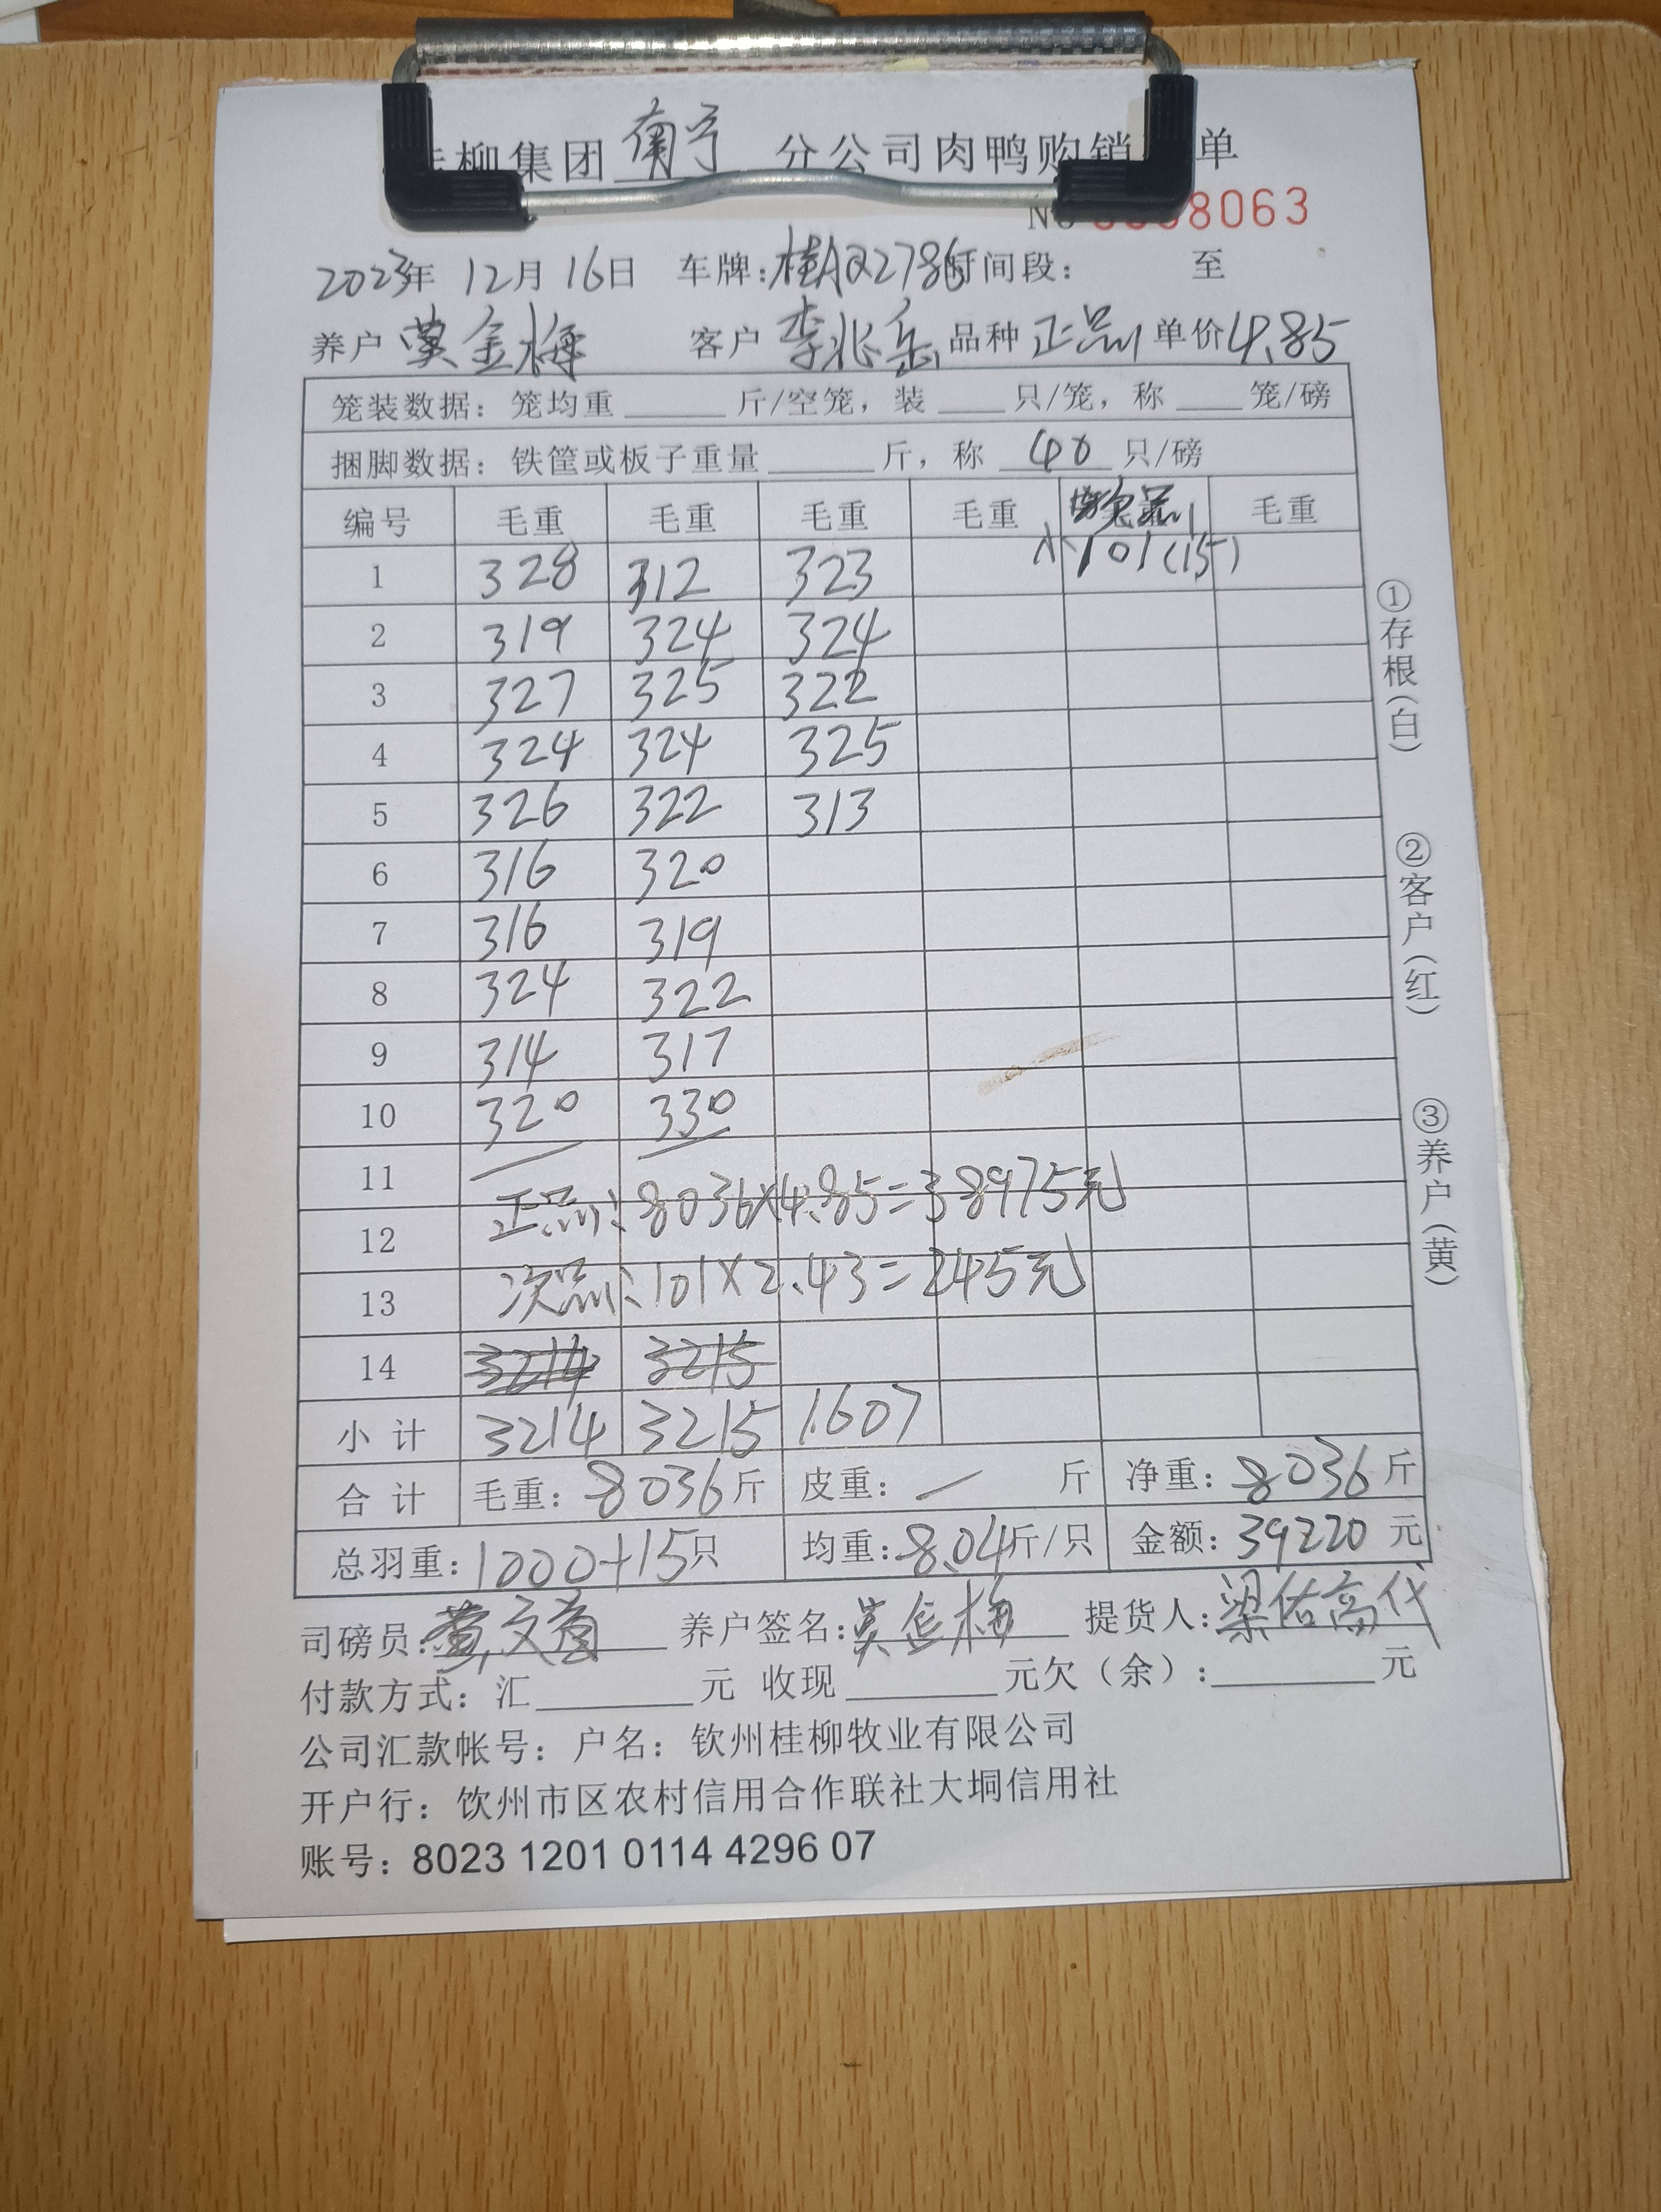 柳集团 南宁 分公司肉鸭购销 单
8063
2023年 12月 16日 车牌:桂AQ2786 时间段: 至
养户 莫金梅 客户 李兆乐 品种 正品 单价 4.85
笼装数据: 笼均重 斤/空笼, 装 只/笼, 称 笼/磅
捆脚数据: 铁筐或板子重量 斤, 称 40 只/磅
编号 毛重 毛重 毛重 毛重 次品 毛重
1 328 312 323 小101(15)
2 319 324 324
3 327 325 322
4 324 324 325
5 326 322 313
6 316 320
7 316 319
8 324 322
9 314 317
10 320 330
11
正品:8036×4.85=38975元
12
次品:101×2.43=245元
13
14 3214 3215
小 计 3214 3215 1607
合 计 毛重: 8036斤 皮重: — 斤 净重: 8036斤
总羽重: 1000+15只 均重: 8.04斤/只 金额: 39220 元
司磅员: 养户签名: 莫金梅 提货人: 梁佑高代
付款方式: 汇 元 收现 元欠(余): 元
公司汇款帐号: 户名: 钦州桂柳牧业有限公司
开户行: 饮州市区农村信用合作联社大垌信用社
账号: 8023 1201 0114 4296 07
①存根(白)
②客户(红)
③养户(黄)